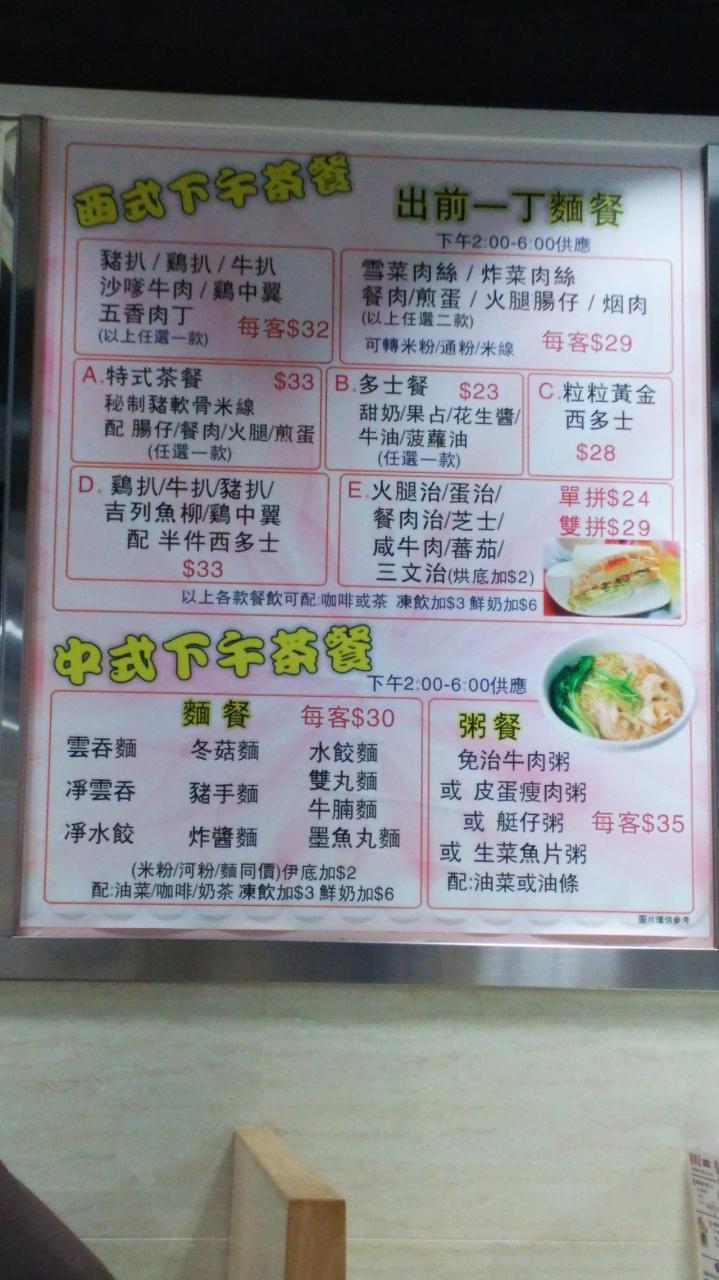 西式下午茶餐
出前一丁麵餐
下午2:00-6:00供應
豬扒/鷄扒/牛扒
沙嗲牛肉/鷄中翼
五香肉丁
(以上任選一款)
每客$32
雪菜肉絲/炸菜肉絲
餐肉/煎蛋/火腿腸仔/烟肉
(以上任選二款)
可轉米粉/通粉/米線
每客$29
A.特式茶餐 $33
秘制豬軟骨米線
配 腸仔/餐肉/火腿/煎蛋
(任選一款)
B.多士餐 $23
甜奶/果占/花生醬/
牛油/菠蘿油
(任選一款)
C.粒粒黃金
西多士
$28
D.鷄扒/牛扒/豬扒/
吉列魚柳/鷄中翼
配 半件西多士
$33
E.火腿治/蛋治/
餐肉治/芝士/
咸牛肉/蕃茄/
三文治(烘底加$2)
單拼$24
雙拼$29
以上各款餐飲可配:咖啡或茶 凍飲加$3 鮮奶加$6
中式下午茶餐
下午2:00-6:00供應
麵餐 每客$30
雲吞麵 冬菇麵 水餃麵
雙丸麵
淨雲吞 豬手麵
牛腩麵
淨水餃 炸醬麵 墨魚丸麵
(米粉/河粉/麵同價)伊底加$2
配:油菜/咖啡/奶茶 凍飲加$3 鮮奶加$6
粥餐
免治牛肉粥
或 皮蛋瘦肉粥
或 艇仔粥 每客$35
或 生菜魚片粥
配:油菜或油條
圖片僅供參考